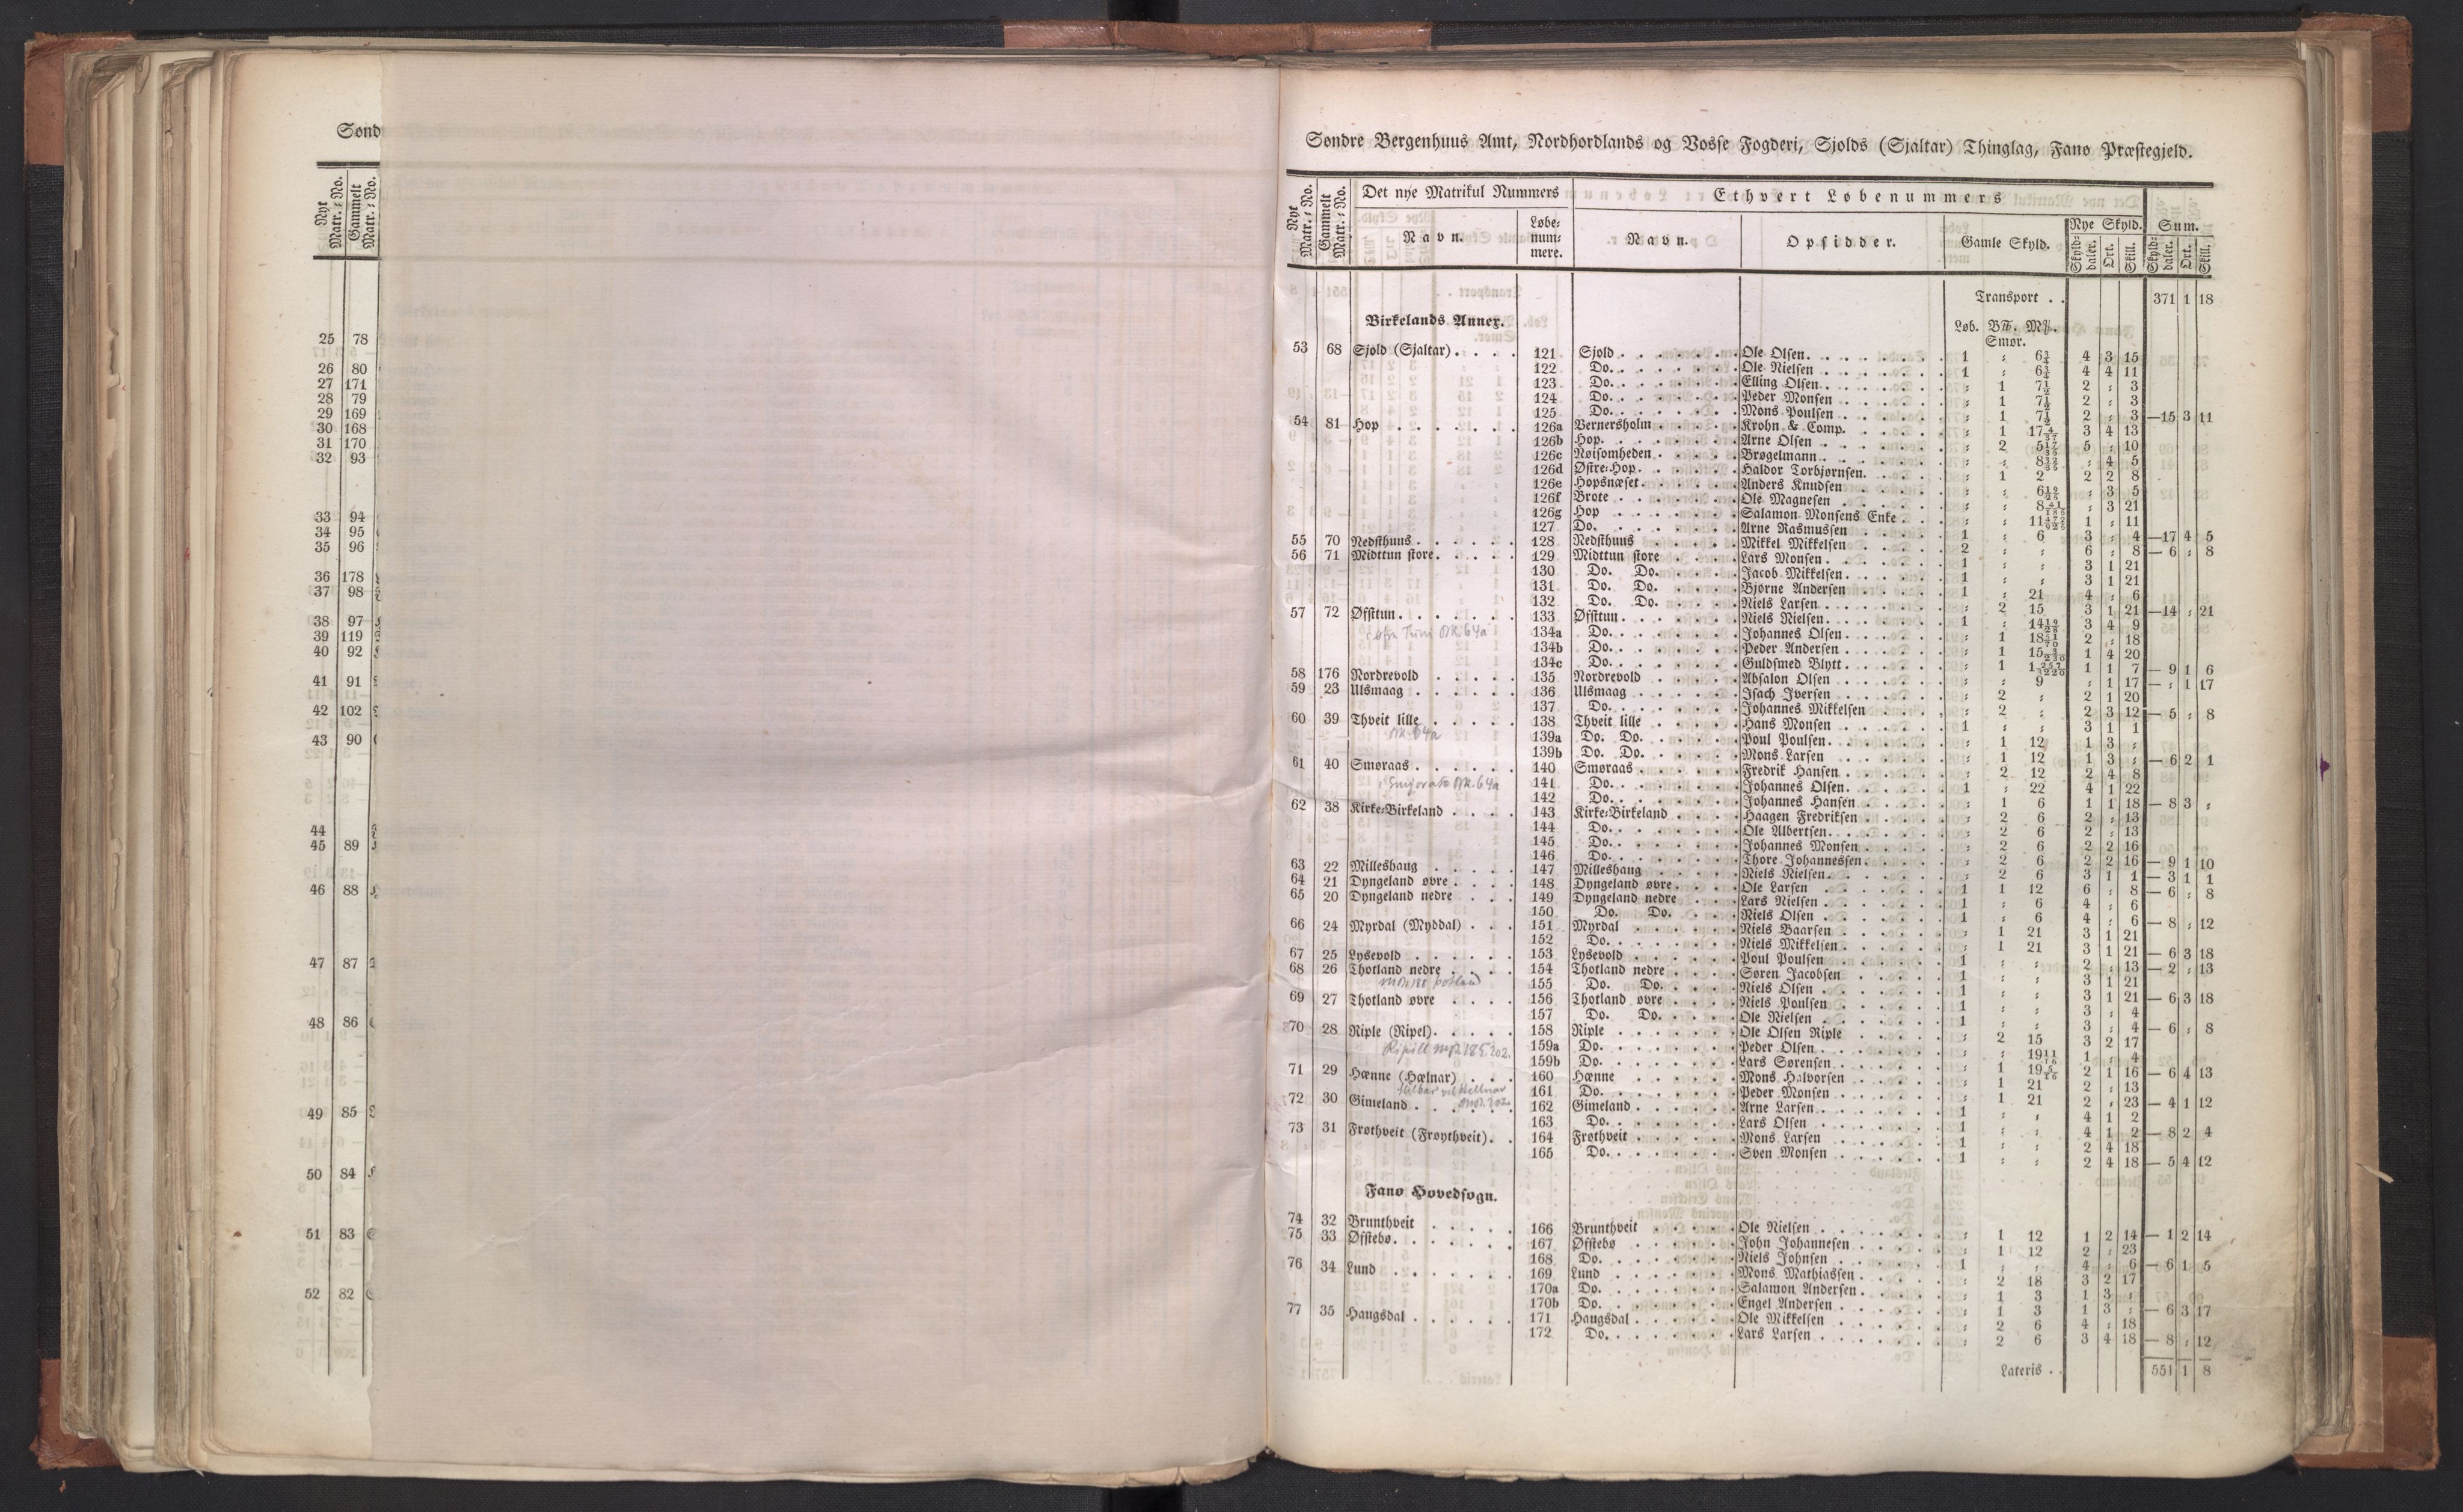 Sønd
Nye Matr.=No.
Gammelt Matr.=No.
25 78
26 80
27 171
28 79
29 169
30 168
31 170
32 93
33 94
34 95
35 96
36 178
37 98
38 97
39 119
40 92
41 91
42 102
43 90
44
45 89
46 88
47 87
48 86
49 85
50 84
51 83
52 82
Søndre Bergenhuus Amt, Nordhordlands og Vosse Fogderi, Sjolds (Sjaltar) Thinglag, Fanø Præstegjeld.
Nye Matr.=No. Gammelt Matr.=No. Det nye Matrikul Nummers Ethvert Løbenummers
Navn. Løbe=num=mere. Navn. Opsidder. Gamle Skyld. Nye Skyld. Sum.
Skyld=daler. Ort. Skill. Skyld=daler. Ort. Skill.
Transport . . 371 1 18
Birkelands Annex.
Løb. B℔. Mk.
Smør.
53 68 Sjold (Sjaltar) . . . . 121 Sjold . . . Ole Olsen. . . . 1 : 6¾ 4 3 15
122 Do. . . . Ole Nielsen . . . 1 : 6¾ 4 4 11
123 Do. . . . Elling Olsen . . . : 1 7½ 2 : 3
124 Do. . . . Peder Monsen . . . : 1 7½ 2 : 3
125 Do. . . . Mons Poulsen . . . : 1 7½ 2 : 3 —15 3 11
54 81 Hop . . . 126a Vernersholm . . . Krohn & Comp. . . . : 1 17 4/37 3 4 13
126b Hop. . . . Arne Olsen . . . : 2 5 5 : 10
126c Nøisomheden . . . Brøgelmann . . . : : 8 : 4 5
126d Østre=Hop. . . . Haldor Torbjørnsen. . . . : 1 2 2 2 8
126e Hopsnæset . . . Anders Knudsen . . . : : 6 : 3 5
126f Brote . . . Ole Magnesen . . . : : 8 : 3 21
126g Hop . . . Salamon Monsens Enke . . . : : 11 1 : 11
127 Do. . . . Arne Rasmussen . . . 1 : 6 3 : 4 —17 4 5
55 70 Nedsthuus . . . 128 Nedsthuus . . . Mikkel Mikkelsen . . . 2 : : 6 : 8 — 6 : 8
56 71 Midttun store . . . 129 Midttun store . . . Lars Monsen . . . 1 : : 3 1 21
130 Do. Do. . . . Jacob Mikkelsen . . . 1 : : 3 1 21
131 Do. Do. . . . Bjørne Andersen . . . 1 : 21 4 : 6
132 Do. Do. . . . Niels Larsen . . . : 2 15 3 1 21 —14 : 21
57 72 Øfsttun . . . 133 Øfsttun . . . Niels Nielsen . . . 1 : 14 3 4 9
134a Do. . . . Johannes Olsen . . . : 1 18 2 : 18
134b Do. . . . Peder Andersen . . . : 1 15 1 4 20
134c Do. . . . Guldsmed Blytt . . . : 1 1 1 1 7 — 9 1 6
58 176 Nordrevold . . . 135 Nordrevold . . . Absalon Olsen . . . : : 9 : 1 17 — : 1 17
59 23 Ulsmaag . . . 136 Ulsmaag . . . Isach Iversen . . . : 2 : 2 1 20
137 Do. . . . Johannes Mikkelsen . . . : 2 : 2 3 12 — 5 : 8
60 39 Thveit lille . . . 138 Thveit lille . . . Hans Monsen . . . 1 : : 3 1 1
139a Do. Do. . . . Poul Poulsen . . . : 1 12 1 3 :
139b Do. Do. . . . Mons Larsen . . . : 1 12 1 3 : — 6 2 1
61 40 Smøraas . . . 140 Smøraas . . . Fredrik Hansen . . . : 2 12 2 4 8
141 Do. . . . Johannes Olsen . . . 1 : 22 4 1 22
142 Do. . . . Johannes Hansen . . . : 1 6 1 1 18 — 8 3 :
62 38 Kirke=Birkeland . . . 143 Kirke=Birkeland . . . Haagen Fredriksen . . . : 2 6 2 : 13
144 Do. . . . Ole Albertsen . . . : 2 6 2 : 13
145 Do. . . . Johannes Monsen . . . : 2 6 2 2 16
146 Do. . . . Thore Johannessen . . . : 2 6 2 2 16 — 9 1 10
63 22 Milleshaug . . . 147 Milleshaug . . . Niels Nielsen . . . : 2 6 3 1 1 — 3 1 1
64 21 Dyngeland øvre . . . 148 Dyngeland øvre . . . Ole Larsen . . . 1 1 12 6 : 8 — 6 : 8
65 20 Dyngeland nedre . . . 149 Dyngeland nedre . . . Lars Nielsen . . . 1 : 6 4 : 6
150 Do. Do. . . . Niels Olsen . . . 1 : 6 4 : 6 — 8 : 12
66 24 Myrdal (Myddal) . . . 151 Myrdal . . . Niels Baarsen . . . : 1 21 3 1 21
152 Do. . . . Niels Mikkelsen . . . : 1 21 3 1 21 — 6 3 18
67 25 Lysevold . . . 153 Lysevold . . . Poul Poulsen . . . 1 : : 2 : 13 — 2 : 13
68 26 Thotland nedre . . . 154 Thotland nedre . . . Søren Jacobsen . . . 1 : : 3 1 21
155 Do. Do. . . . Niels Olsen . . . 1 : : 3 1 21 — 6 3 18
69 27 Thotland øvre . . . 156 Thotland øvre . . . Niels Poulsen . . . 1 : : 3 : 4
157 Do. Do. . . . Ole Nielsen . . . 1 : : 3 : 4 — 6 : 8
70 28 Riple (Ripel) . . . 158 Riple . . . Ole Olsen Riple . . . : 2 15 3 2 17
159a Do. . . . Peder Olsen . . . : : 19 11/16 1 : 4
159b Do. . . . Lars Sørensen . . . : 1 19 5/16 2 1 16 — 6 4 13
71 29 Hænne (Hælnar) . . . 160 Hænne . . . Mons Halvorsen . . . : 1 21 2 : 13
161 Do. . . . Peder Monsen . . . : 1 21 2 : 23 — 4 1 12
72 30 Gimeland . . . 162 Gimeland . . . Arne Larsen . . . 1 : : 4 1 2
163 Do. . . . Lars Olsen . . . 1 : : 4 1 2 — 8 2 4
73 31 Frøthveit (Frøythveit) . . 164 Frøthveit . . . Mons Larsen . . . 1 : : 2 4 18
165 Do. . . . Sven Monsen . . . 1 : : 2 4 18 — 5 4 12
Fanø Hovedsogn.
74 32 Brunthveit . . . 166 Brunthveit . . . Ole Nielsen . . . : 1 12 1 2 14 — 1 2 14
75 33 Øfstebø . . . 167 Øfstebø . . . John Johannesen . . . : 1 12 2 : 23
168 Do. . . . Niels Johnsen . . . 1 : : 4 : 6 — 6 1 5
76 34 Lund . . . 169 Lund . . . Mons Mathiassen . . . : 2 18 3 2 17
170a Do. . . . Salamon Andersen . . . : 1 3 1 3 :
170b Do. . . . Engel Andersen . . . : 1 3 1 3 : — 6 3 17
77 35 Haugsdal . . . 171 Haugsdal . . . Ole Mikkelsen . . . : 2 6 4 : 18
172 Do. . . . Lars Larsen . . . : 2 6 3 4 18 — 8 : 12
Lateris . . 551 1 8